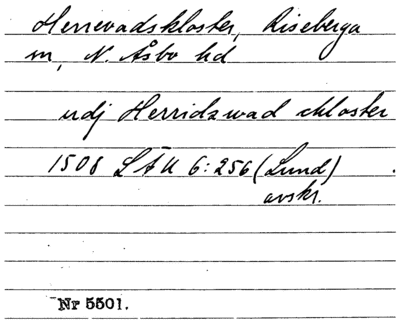 Herrevadskloster, Riseberga
sn, N. Åsbo hd
udj Herridzwad closter
1508 LÄU 6:256 (Lund)
avskr.
Nr 5501.